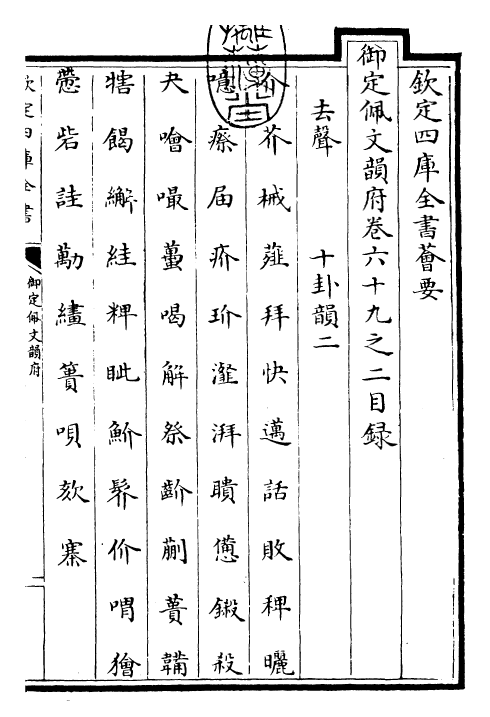 欽定四庫全書薈要
御定佩文韻府卷六十九之二目録
去聲 十卦韻二
介芥械薤拜快邁話敗稗曬
噫瘵届疥玠瀣湃聵憊鎩殺
夬噲嘬蠆喝解祭齘蒯蕢韛
犗餲繲絓粺眦魪髤价喟獪
懘砦詿勱繣簣唄欬寨
欽定四庫全書
御定佩文韻府